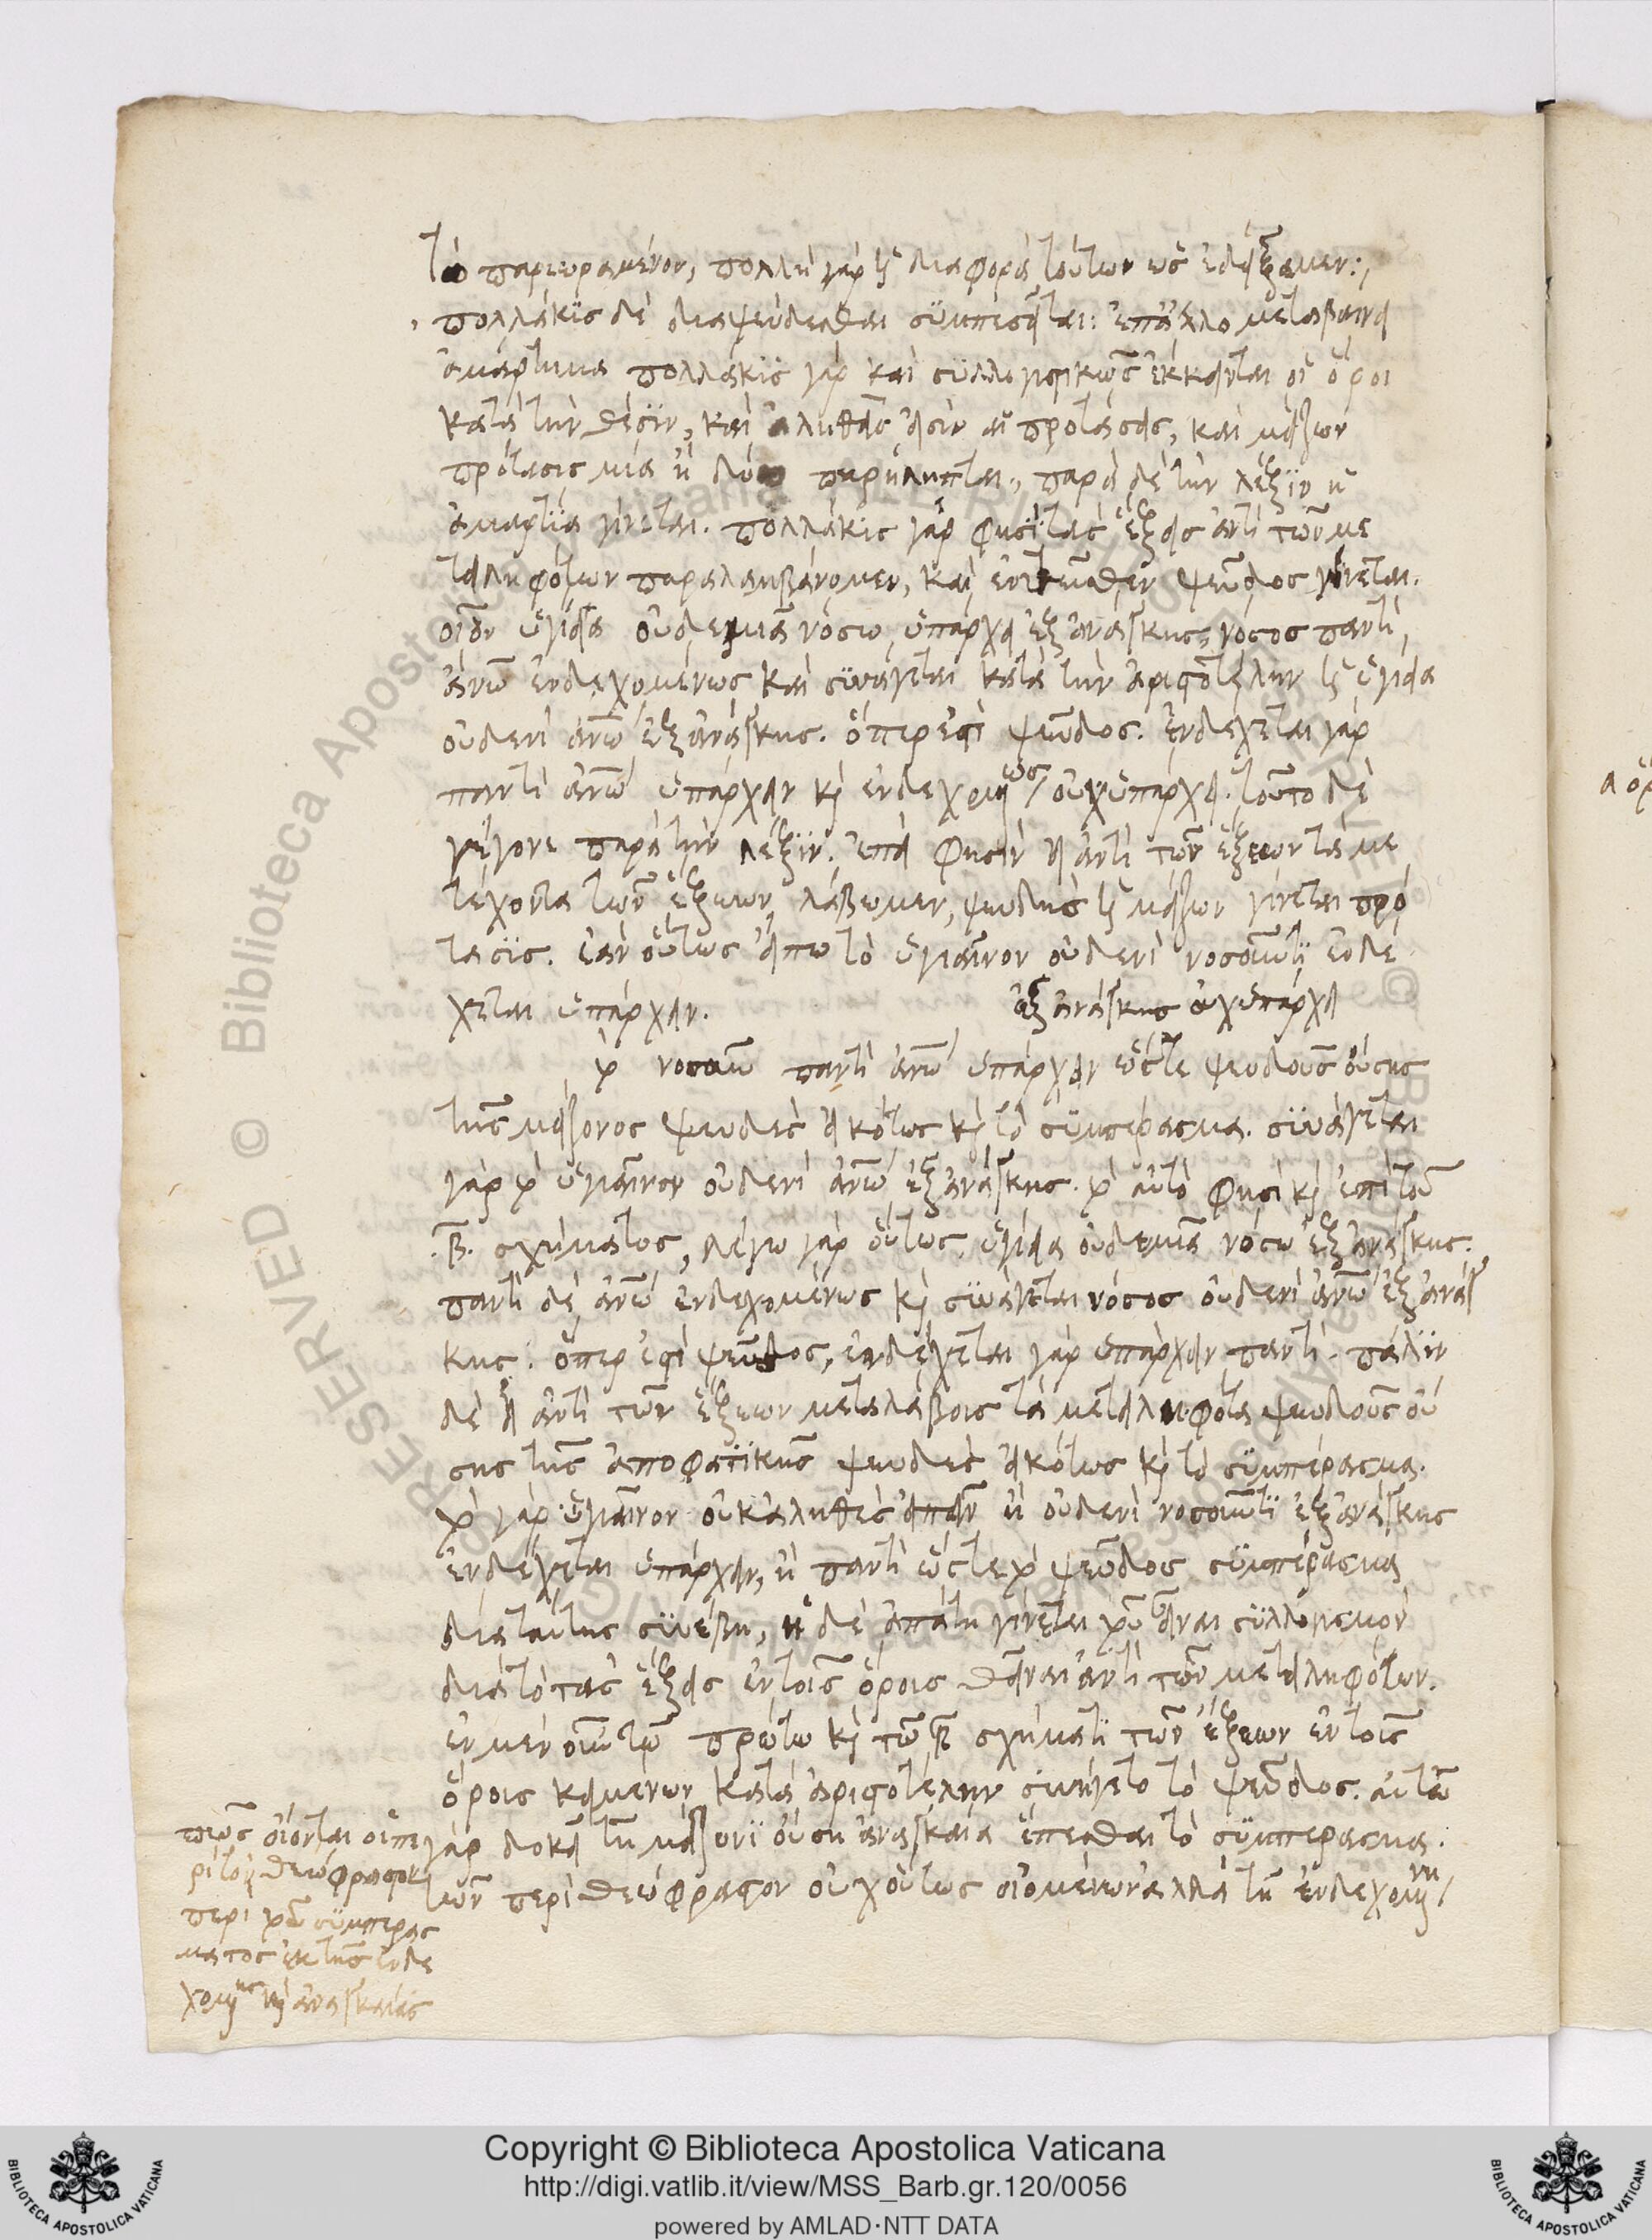 τὸ παρεωραμένον, πολλὴ γὰρ ἡ διαφορὰ τούτων ὡς ἐδείξαμεν:,
πολλάκις δὲ διαψεύδεσθαι συμπεσεῖται: ἐπ' ἄλλο μεταβαίνει
ἁμάρτημα πολλάκις γὰρ καὶ συλλογιστικῶς ἔκκεινται οἱ ὅροι
κατὰ τὴν θέσιν, καὶ ἀληθεῖς εἰσὶν αἱ προτάσεις, καὶ μείζων
πρότασις μία ἢ δύο παρείληπται., παρὰ δὲ τὴν λέξιν ἡ
ἁμαρτία γίνεται. πολλάκις γάρ φησι τὰς ἕξεις ἀντὶ τῶν με
τειληφότων παραλαμβάνομεν, καὶ ἐντεῦθεν ψεῦδος γίνεται.
οἷον ὑγίεια οὐδεμιᾶ νόσω, ὑπάρχει ἐξ ἀνάγκης, νόσος παντὶ,
ἀνω ἐνδεχομένως καὶ συνάγεται κατὰ τὴν ἀριστοτέλην ἡ ὑγίεια
οὐδενὶ ἀνω ἐξ ἀνάγκης. ὅπερ ἐστὶ ψεῦδος. ἐνδέχεται γὰρ
παντὶ ἀνω ὑπάρχειν καὶ ἐνδεχομένως οὐχ ὑπάρχει. τοῦτο δὲ
γέγονε παρὰ τὴν λέξιν. ἐπεὶ φησιν εἰ ἀντὶ τῶν ἕξεων τὰ με
τέχοντα τῶν ἕξεων λάβωμεν, ψευδὴς ἡ μείζων γίνεται πρό
τασις. ἐὰν οὕτως εἴπω τὸ ὑγιαῖνον οὐδενὶ νοσοῦντι ἐνδέ
χεται ὑπάρχειν. ἐξ ἀνάγκης οὐχ υπάρχει
τὸ νοσοῦν παντὶ ἀνω ὑπάρχειν ὥστε ψευδοῦς οὔσης
τῆς μείζονος ψευδὲς εἰκότως καὶ τὸ συμπέρασμα. συνάγεται
γὰρ τὸ ὑγιαῖνον οὐδενὶ ἀνω ἐξ ἀνάγκης. τὸ αὐτὸ φησὶ καὶ ἐπὶ τοῦ
.β. σχήματος, λέγω γὰρ οὕτως, ὑγίεια οὐδεμιᾶ νόσω ἐξ ἀνάγκης.
παντὶ δὲ ἀνω ἐνδεχομένως καὶ συνάγεται νόσος οὐδενὶ ἀνω ἐξ ἀνάγ
κης: ὅπερ ἐστὶ ψεῦδος, ἐνδέχεται γὰρ ὑπάρχειν παντὶ. πάλιν
δὲ εἰ ἀντὶ τῶν ἕξεων μεταλάβοις τὰ μετειληφότα ψευδοῦς οὔ
σης τῆς ἀποφατικῆς ψευδὲς εἰκότως καὶ τὸ συμπέρασμα.
τὸ γὰρ ὑγιαῖνον οὐκ ἀληθὲς εἰπεῖν ἢ οὐδενὶ νοσοῦντι ἐξ ἀνάγκης
ἐνδέχεται ὑπάρχειν, ἢ παντὶ ὥστε τὸ ψεῦδος συμπέρασμα
διὰ ταύτης συνέβη, ἡ δὲ ἀπάτη γίνεται τοῦ εἶναι συλλογισμὸν
διὰ τὸ τὰς ἕξεις ἐν τοῖς ὅροις θεῖναι ἀντὶ τῶν μετειληφότων.
ἐν μὲν οὖν τῷ πρώτω καὶ τῶ β σχήματι τῶν ἕξεων ἐν τοῖς
ὅροις κειμένων κατὰ ἀριστοτέλην συνήγετο τὸ ψεῦδος. αὐτῶ
γὰρ δοκεῖ τῆ μείζονι οὔση ἀναγκαία ἕπεσθαι τὸ συμπέρασμα.
τῶν περὶ θεόφραστον οὐχ οὕτως οἰομένων ἀλλὰ τῆ ἐνδεχομένη
πῶς οἴονται οἱ πε
ρὶ τὸν θεόφραστον
περὶ τοῦ συμπεράσ
ματος ἐκ τῆς ἐνδε
χομένης καὶ ἀναγκαίας
RESERVED © Biblioteca Apostolica Vaticana
Copyright © Biblioteca Apostolica Vaticana
http://digi.vatlib.it/view/MSS_Barb.gr.120/0056
powered by AMLAD·NTT DATA
BIBLIOTECA APOSTOLICA VATICANA
BIBLIOTECA APOSTOLICA VATICANA